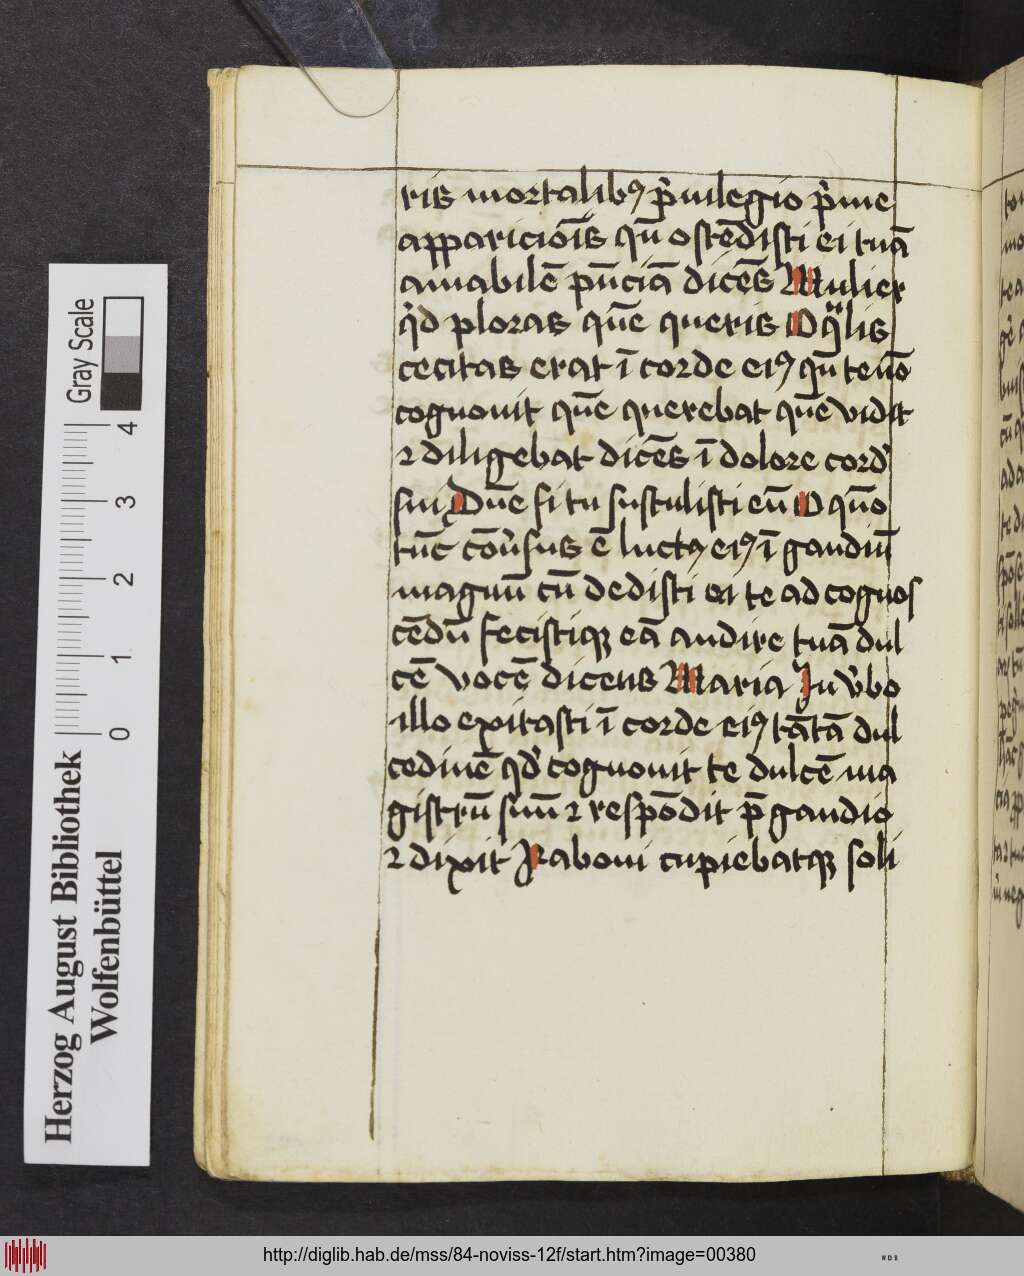 ris mortalibꝰ p̃uilegio p̃me
apparicoĩs qñ ostẽdisti ei tuã
amabilẽ pñciã dicẽs Mulier
q̃d ploras quẽ queris O qͣlis
cecitas erat ĩ corde eiꝰ qñ te nõ
cognouit quẽ querebat quẽ vidit
⁊ diligebat dicẽs ĩ dolore cord̃
sui Dñe si tu sustulisti eũ O quõ
tũc cõũsus ẽ luctꝰ eiꝰ ĩ gaudiũ
magnũ cũ dedisti ei te ad cognos
cẽdũ fecistiqꝫ eã audire tuã dul
cẽ vocẽ dicens Maria In ṽbo
illo exitasti ĩ corde eiꝰ tãtã dul
cedinẽ qd̃ cognouit te dulcẽ ma
gistrũ suũ ⁊ respõdit p̃ gaudio
⁊ dixit Raboni cupiebatqꝫ soli
Gray Scale
4
3
2
1
0
Herzog August Bibliothek
Wolfenbüttel
http://diglib.hab.de/mss/84-noviss-12f/start.htm?image=00380